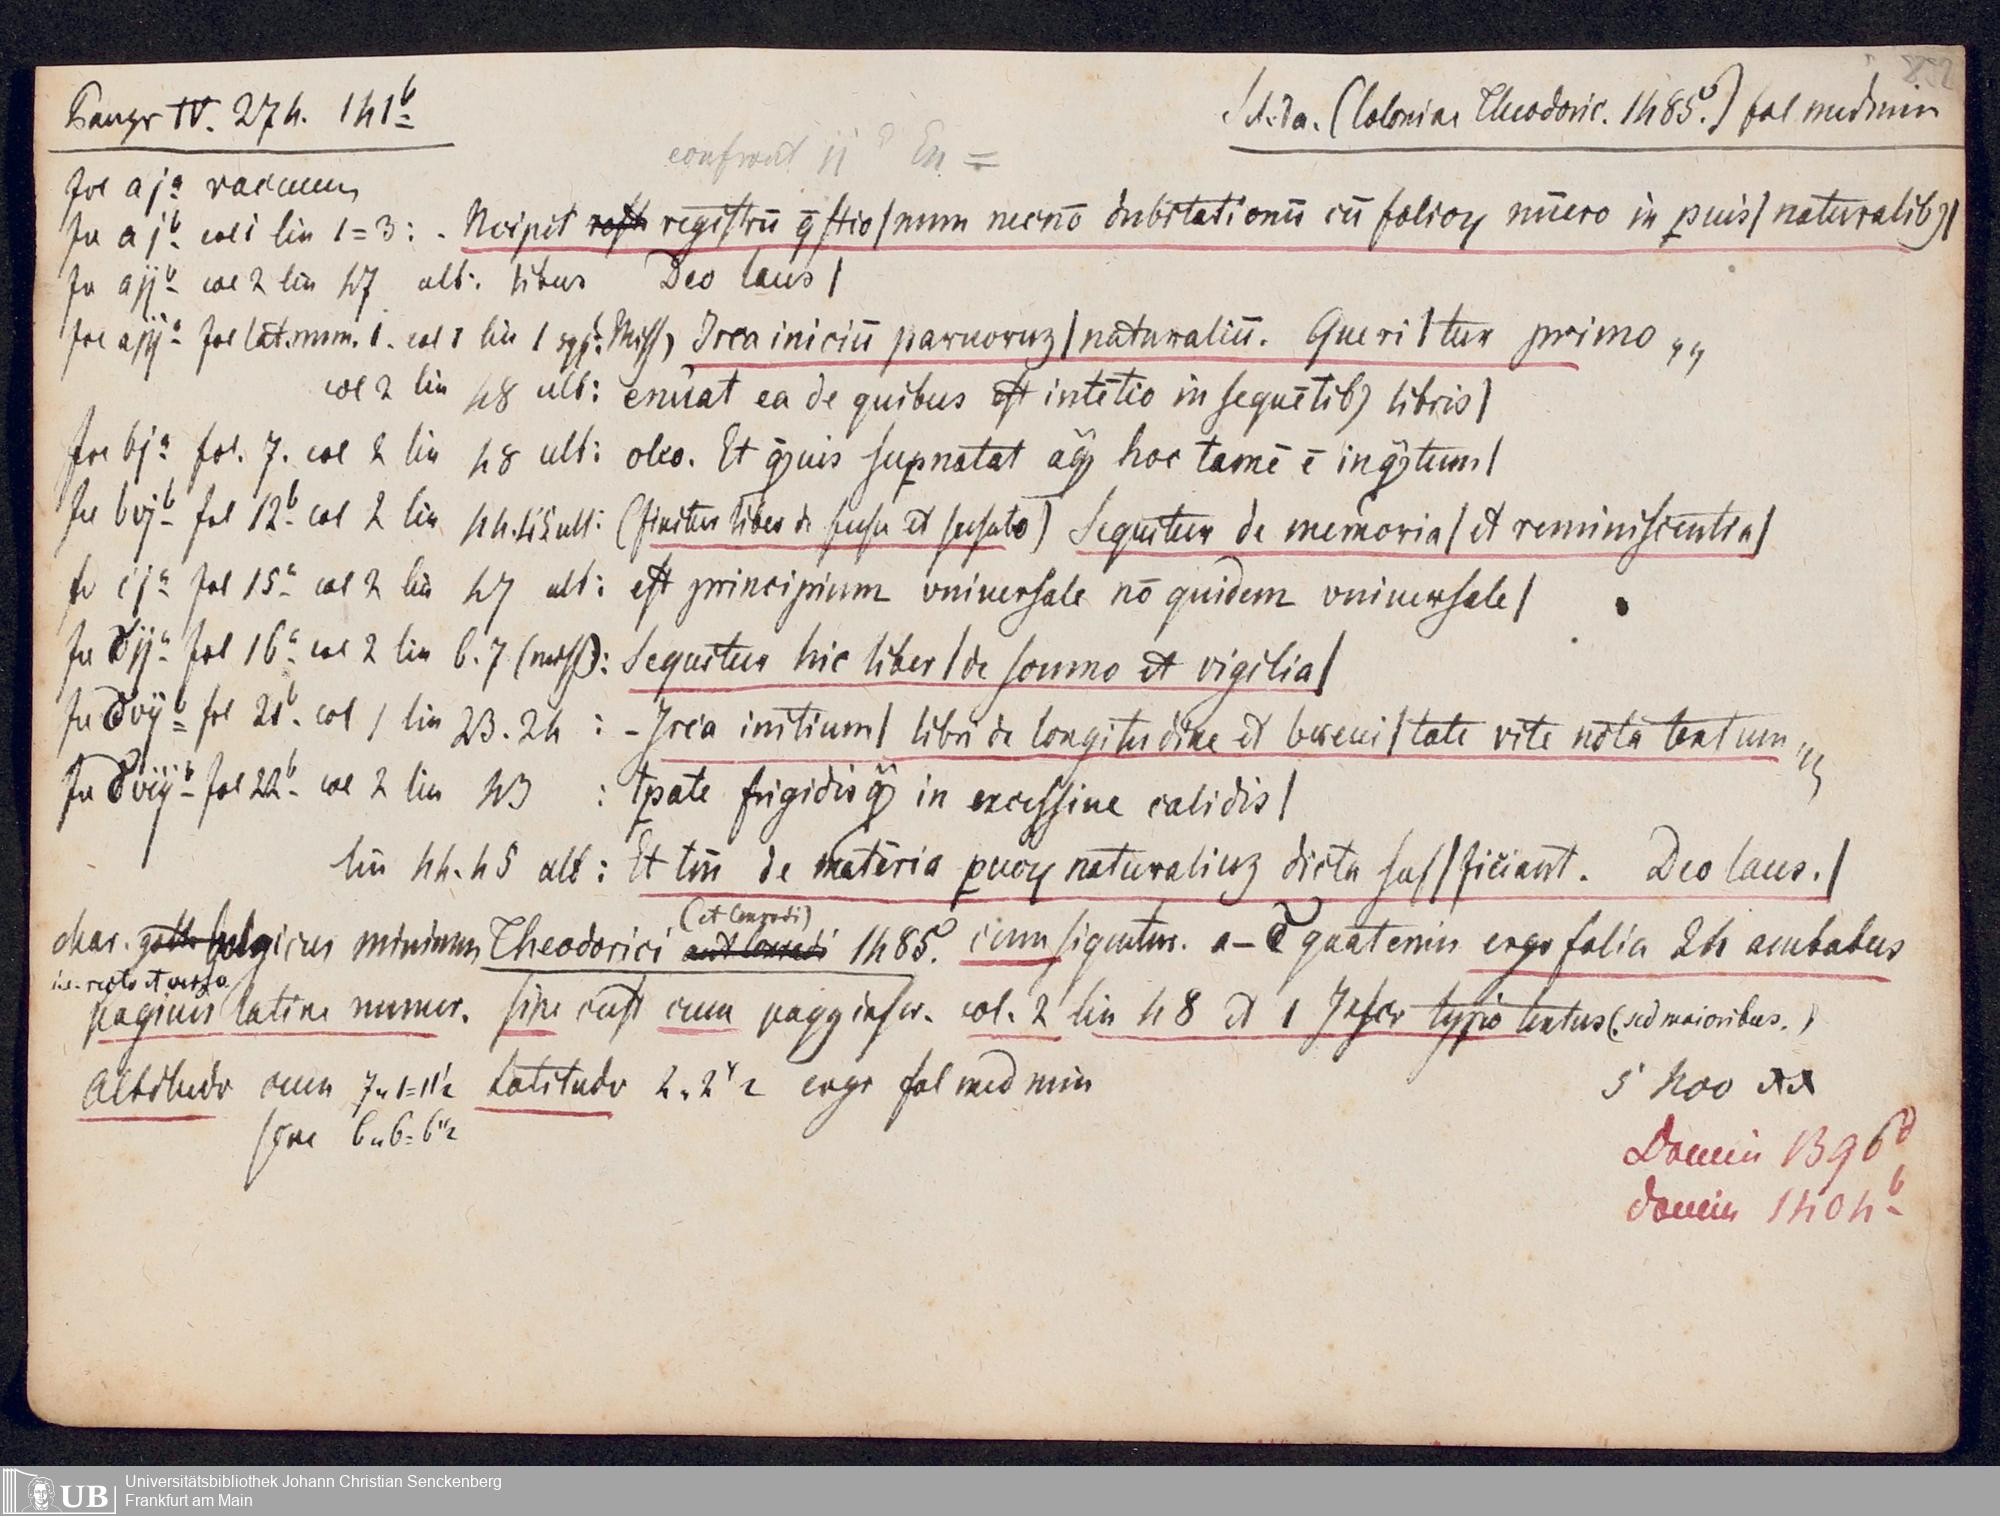 Panzr IV. 274. 141b
S.l.da. (Coloniae Theodoric. 1485.) fol med min
confront
fol aja vacuum
fol ajb col 1 lin 1=3: Ncipit registrū q̄stio/num necnō dubitationū cū folioꝝ nūero in puis/naturalibꝫ/
fol aijb col 2 lin 47 ult: libus Deo laus/
fol aiija fol lat. num. 1. col 1 lin 1 Irca iniciū paruoruꝫ/naturaliū. Queri/tur primo „
col 2 lin 48 ult: enūat ea de quibus est intētio in sequētibꝫ libris/
fol bja fol. 7. col 2 lin 48 ult: oleo. Et q̄uis supnatat aq̄ hoc tamē ē inq̄tum/
fol bvjb fol 12b col 2 lin 44.45 ult: (finitur liber de sensu et sensato) Sequitur de memoria/et reminiscentia/
fol cja fol 15a col 2 lin 47 ult: est principium vniuersale nō quidem vniuersale/
fol dija fol 16a col 2 lin 6.7 (miss): Sequitur hic liber/de somno et vigilia/
fol dvijb fol 21b col 1 lin 23.24: -Irca initium/libri de longitudine et breui/tate vite nōta textum „
fol dviijb fol 22b col 2 lin 43: tpate frigidisq̄ in excessiue calidis/
lin 44.45 ult: Et tm̄ de matēria puoꝝ naturaliuꝫ dicta suf/ficiant. Deo laus./
(et Conradi)
char. belgicus minimus Theodorici 1485. cum signatur. a-d quaternis ergo folia 24 ambabus
i.e. recto et verso
paginis latine numer. sine cust cum pagg inscr. col. 2 lin 48 et 1 Inscr typio textus (sed maioribus.)
Altitudo cum 7„1=11½ Latitudo 2„2½ ergo fol med min
sine 6„6=6½
5 Nov xx
Dounin 1396d
dounin 1404b
UB
Universitätsbibliothek Johann Christian Senckenberg
Frankfurt am Main